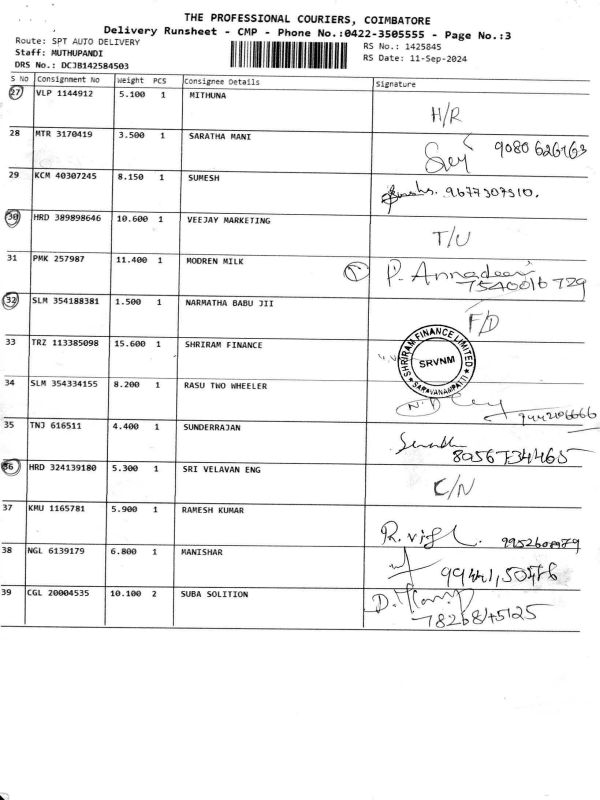 THE PROFESSIONAL COURIERS, COIMBATORE
Delivery Runsheet - CMP - Phone No.:0422-3505555 - Page No.:3
Route: SPT AUTO DELIVERY
RS No.: 1425845
Staff: MUTHUPANDI
RS Date: 11-Sep-2024
DRS No.: DCJB142584503
S No Consignment No Weight PCS Consignee Details Signature
27 VLP 1144912 5.100 1 MITHUNA H/R
28 MTR 3170419 3.500 1 SARATHA MANI
29 KCM 40307245 8.150 1 SUMESH 9677307510.
30 HRD 389898646 10.600 1 VEEJAY MARKETING T/U
31 PMK 257987 11.400 1 MODREN MILK P. Annadevi
7540016729
32 SLM 354188381 1.500 1 NARMATHA BABU JII F/D
33 TRZ 113385098 15.600 1 SHRIRAM FINANCE
SHRIRAM FINANCE LIMITED
SRVNM
SARAVANAMPATTI
34 SLM 354334155 8.200 1 RASU TWO WHEELER 9442106666
35 TNJ 616511 4.400 1 SUNDERRAJAN
8056734465
36 HRD 324139180 5.300 1 SRI VELAVAN ENG C/N
37 KMU 1165781 5.900 1 RAMESH KUMAR
38 NGL 6139179 6.800 1 MANISHAR
39 CGL 20004535 10.100 2 SUBA SOLITION